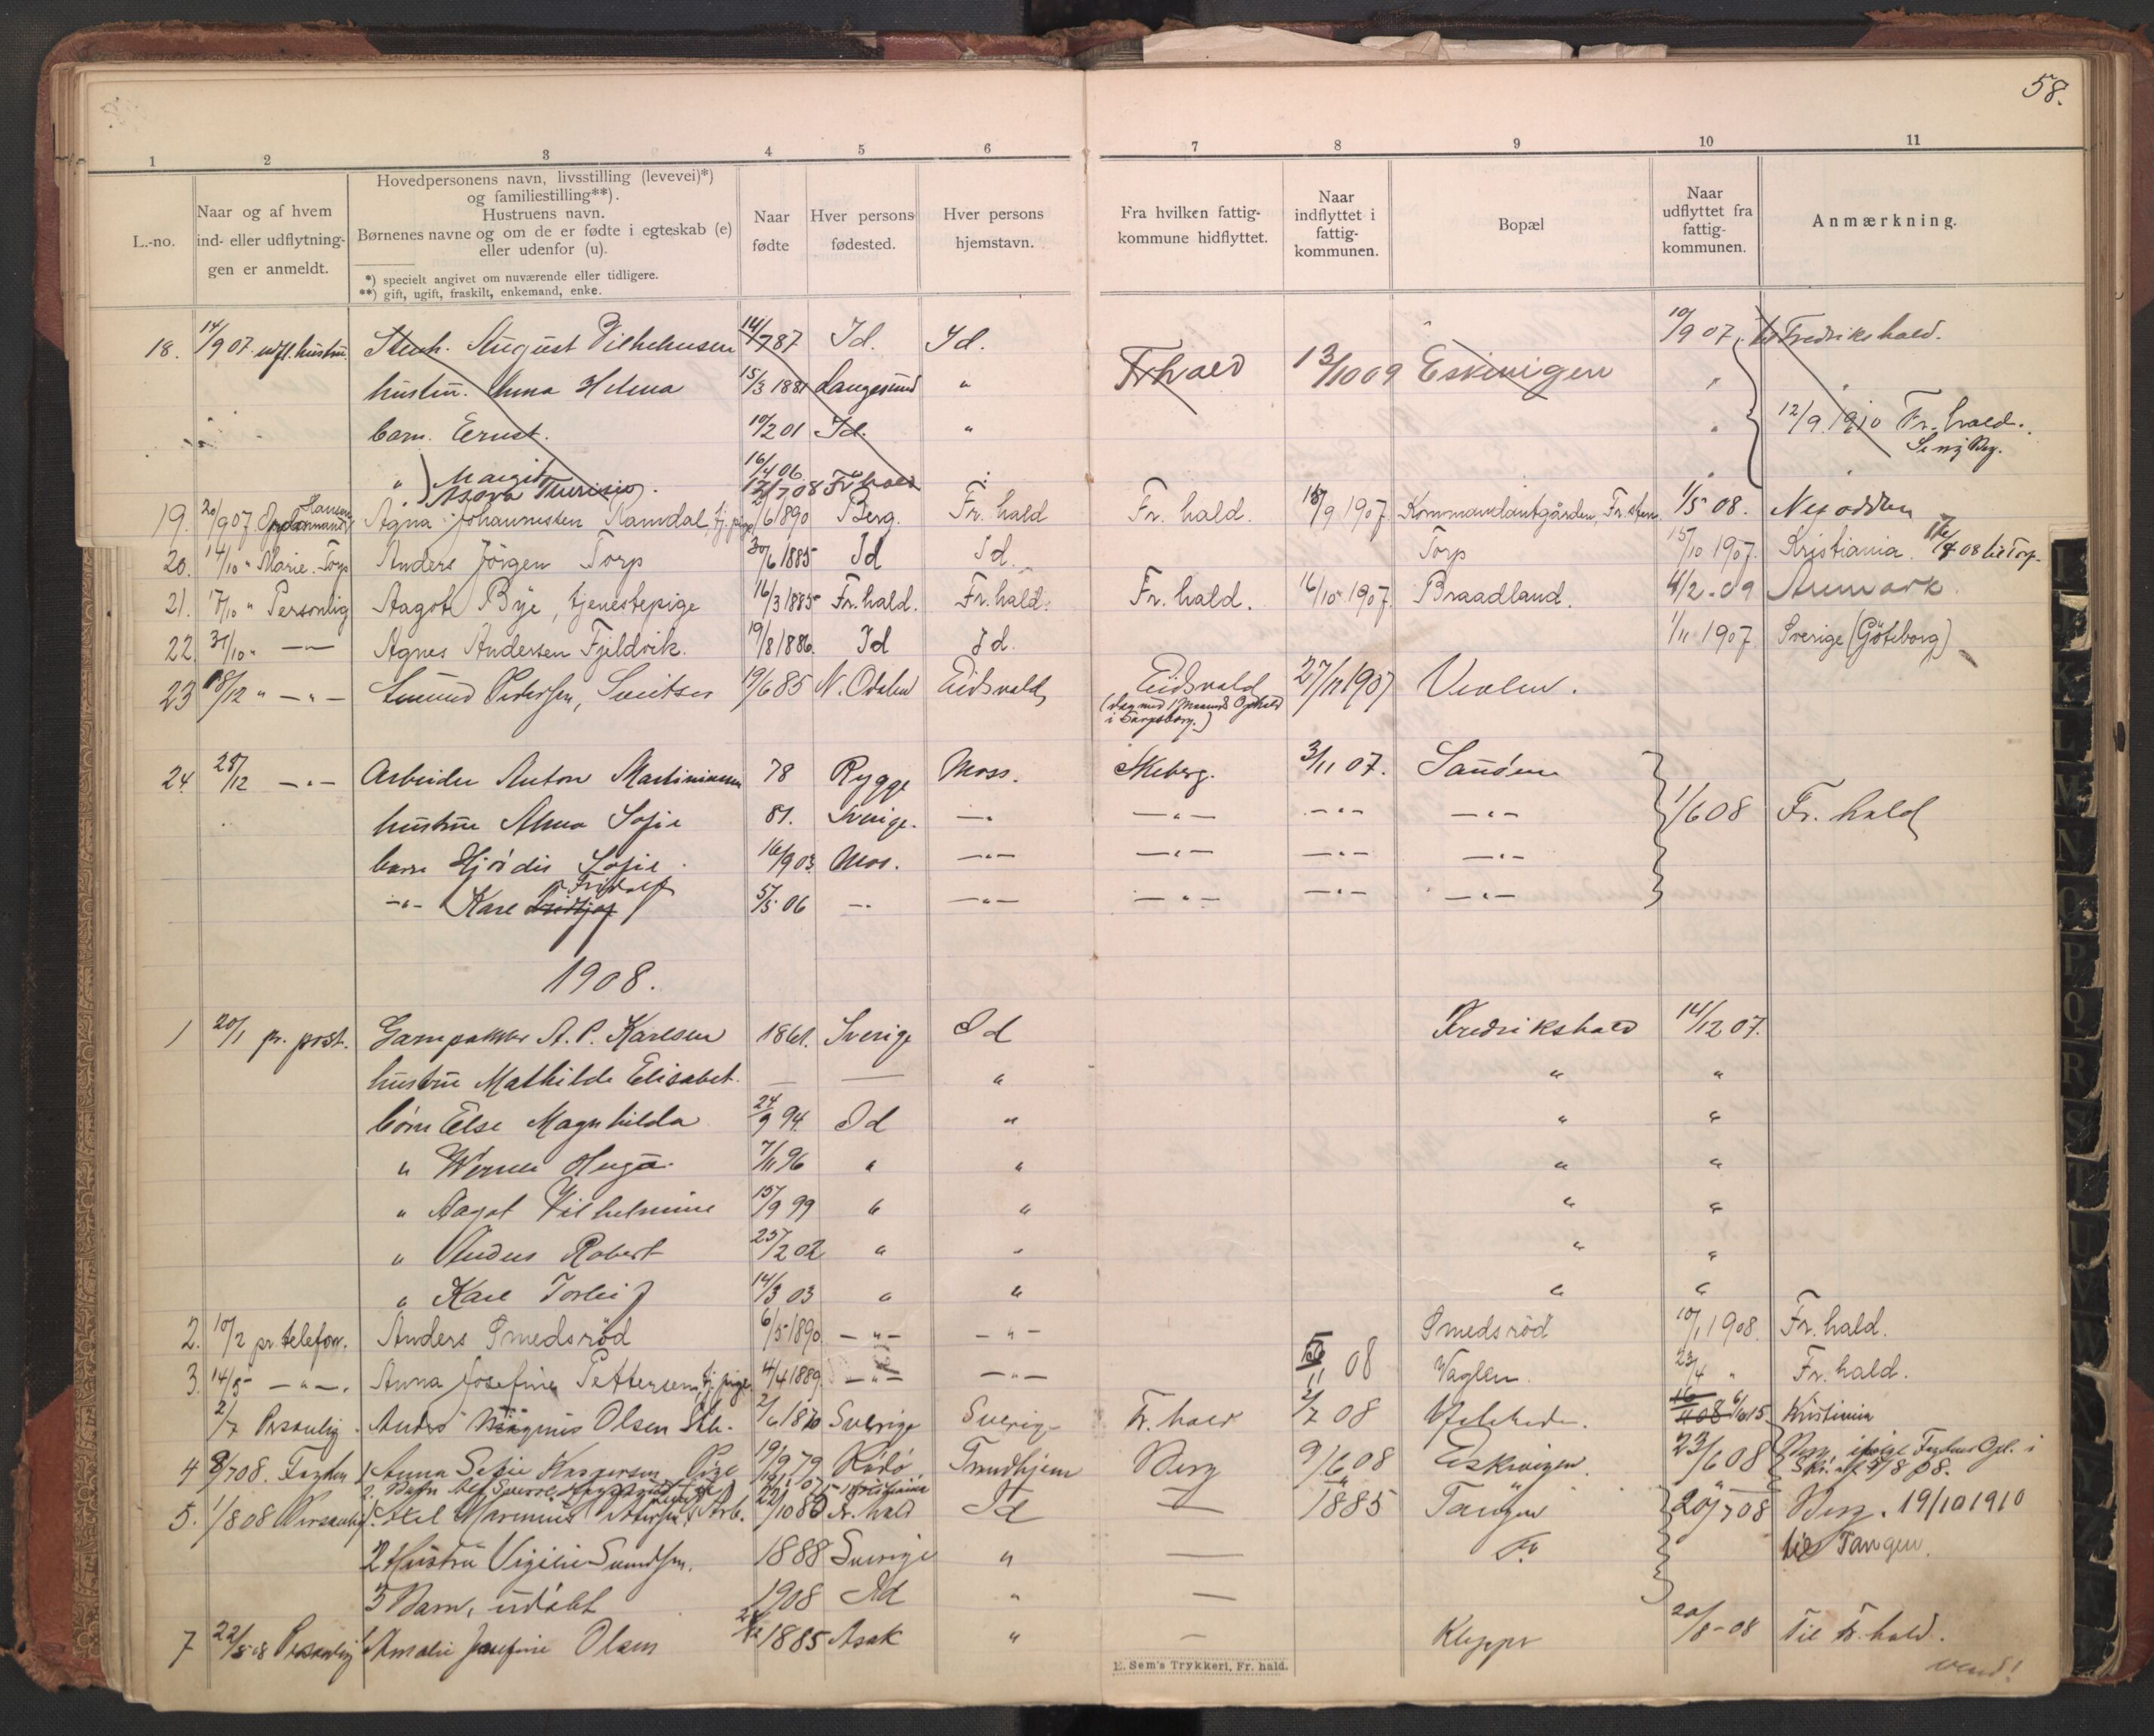 58.
1 2 3 4 5 6 7 8 9 10 11
L.-no.
Naar og af hvem ind- eller udflytningen er anmeldt.
Hovedpersonens navn, livsstilling (levevei)*) og familiestilling**).
Hustruens navn.
Børnenes navne og om de er fødte i egteskab (e) eller udenfor (u).
*) specielt angivet om nuværende eller tidligere.
**) gift, ugift, fraskilt, enkemand, enke.
Naar fødte
Hver persons fødested.
Hver persons hjemstavn.
Fra hvilken fattigkommune hidflyttet.
Naar indflyttet i fattigkommunen.
Bopæl
Naar udflyttet fra fattigkommunen.
Anmærkning.
18. 14/9 07 udfl. hustru. Stenh. August Vilhelmsen 14/7 87 Id. Id. Fr hald 13/10 09 Eskevigen 10/9 07 til Fredrikshald.
hustru. Anna Helena 15/3 1881 Langesund "
barn. Ernst. 10/2 01 Id. " " 12/9 1910 Fr. hald.
" Margit 16/4 06
12/7 08 Fr hald
19. 20/9 07 Hansen Agna Johannessen Ramdal, tj. pige 2/6 1890 Berg. Fr. hald Fr. hald. 18/9 1907 Kommandantgården, Fr. sten 1/5 08. Nesodden
20. 14/10 " Marie Torp Anders Jörgen Torp 30/6 1885 Id Id. Torp 15/10 1907. Kristiania. 08 til Torp.
21. 17/10 " Personlig Aagot Bye, tjenestepige 16/3 1885 Fr. hald. Fr. hald. Fr. hald. 16/10 1907 Braadland. 4/2 - 09 Aremark.
22. 31/10 " — " — Agnes Andersen Fjeldvik. 19/8 1886. Id Id. 1/11 1907 Sverige (Göteborg)
23 18/12 " — " — Pedersen, 19/6 85 N. Odalen Eidsvold Eidsvold 27/11 1907 Veden.
i Sarpsborg.)
24. 28/12 — " — Arbeider Anton Martiniusen 78 Rygge Moss. Skeberg. 3/11 07. Sauöen
hustru Alma Sofie 81. Sverige. — " — — " — — " — — " — 1/6 08 Fr. hald
barn Hjördis Sofie. 16/9 03. Mos. — " — — " — — " — — " —
— " — Kare Fridtjof Fridolf 5/5 06 — " — — " — — " — — " — — " —
1908.
1 20/1 pr. post. A. P. Karlsen 1861. Sverige Id Fredrikshald 14/12 07.
hustru Mathilde Elisabet. — — " " "
börn Else Magnhilda 24/9 94. Id " " "
" Werner Hugo. 7/11 96 " " " "
" Aagot Vilhelmine 15/9 99 " " " "
" Anders Robert 25/2 02 " " " "
" Kare Torleif 14/3 03 " " " "
2. 10/2 pr. telefon. Anders Smedsröd 6/5 1890. — " — — " — Smedsröd 10/1 1908. Fr. hald.
3. 14/5 — " —. Anna Josefine Pettersen, tj. pige 4/4 1889. — " — — " — 08 Vaglen. 23/4 " Fr. hald.
2/7 Personlig. Anders Magnus Olsen 2/6 1870 Sverige Sverige Fr. hald 2/7 08 6/6 15. Kristiania
4 8/7 08. Fogden 1. Anna Sofie Kaspersen Pige 19/9 79 Rödö Trondhjem Berg 9/6 08 Eskevigen. 23/6 08 Berg.
2. Barn Alf Sverre Kristiania
5. 1/8 08 Personlig 1. Axel Marinius Arb. 22/10 86 Fr. hald Id — 1885 Tangen 20/7 08 Berg. 19/10 1910
2 Hustru Sverige 1888 " — Do til Tangen.
3 Barn, udöbt 1908 Id " —
7 22/8 08 Personlig Amalie Josefine Olsen 1885 Asak " — Klepper 20/8 - 08 Til Fr. hald.
vend!
E. Sem's Trykkeri, Fr. hald.
K L M N O P Q R S T U V W